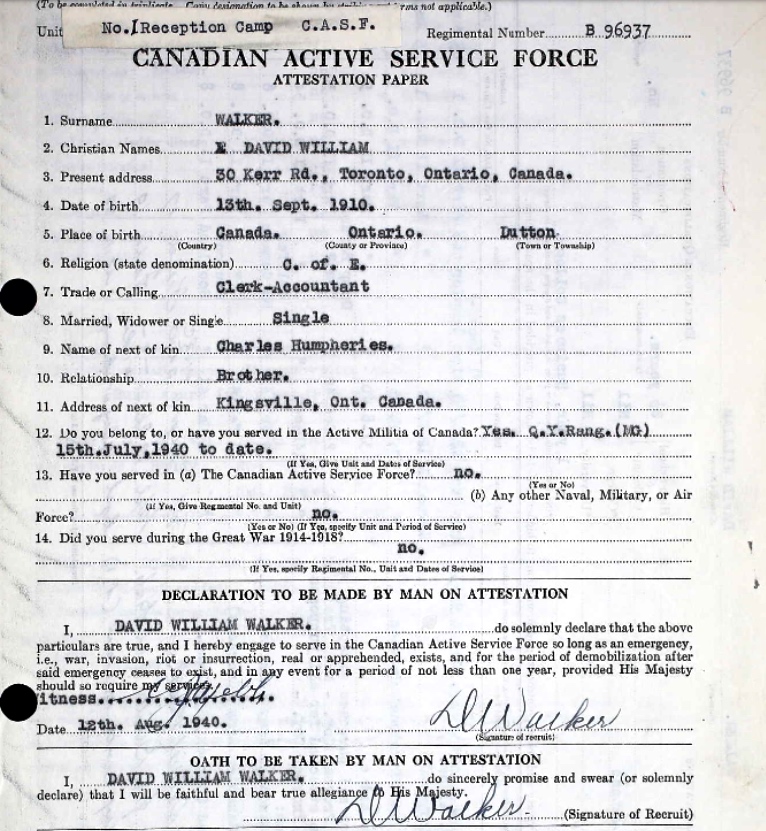 (To be completed in triplicate. Corps designation to be shown by existing forms not applicable.)
Unit No. 1 Reception Camp C.A.S.F. Regimental Number B 96937
CANADIAN ACTIVE SERVICE FORCE
ATTESTATION PAPER
1. Surname WALKER.
2. Christian Names DAVID WILLIAM
3. Present address 30 Kerr Rd., Toronto, Ontario, Canada.
4. Date of birth 13th. Sept. 1910.
5. Place of birth Canada. Ontario. Dutton
(Country) (County or Province) (Town or Township)
6. Religion (state denomination) C. of. E.
7. Trade or Calling Clerk-Accountant
8. Married, Widower or Single Single
9. Name of next of kin Charles Humpheries.
10. Relationship Brother.
11. Address of next of kin Kingsville, Ont. Canada.
12. Do you belong to, or have you served in the Active Militia of Canada? Yes. Q.Y.Rang.(MG)
15th.July,1940 to date.
(If Yes, Give Unit and Dates of Service)
13. Have you served in (a) The Canadian Active Service Force? no.
(Yes or No)
(b) Any other Naval, Military, or Air
(If Yes, Give Regimental No. and Unit)
Force? no.
(Yes or No) (If Yes, specify Unit and Period of Service)
14. Did you serve during the Great War 1914-1918?
no.
(If Yes, specify Regimental No., Unit and Dates of Service)
DECLARATION TO BE MADE BY MAN ON ATTESTATION
I, DAVID WILLIAM WALKER. do solemnly declare that the above
particulars are true, and I hereby engage to serve in the Canadian Active Service Force so long as an emergency,
i.e., war, invasion, riot or insurrection, real or apprehended, exists, and for the period of demobilization after
said emergency ceases to exist, and in any event for a period of not less than one year, provided His Majesty
should so require my services.
itness
Date 12th. Aug. 1940. D W Walker
(Signature of recruit)
OATH TO BE TAKEN BY MAN ON ATTESTATION
I, DAVID WILLIAM WALKER. do sincerely promise and swear (or solemnly
declare) that I will be faithful and bear true allegiance to His Majesty.
D W Walker (Signature of Recruit)